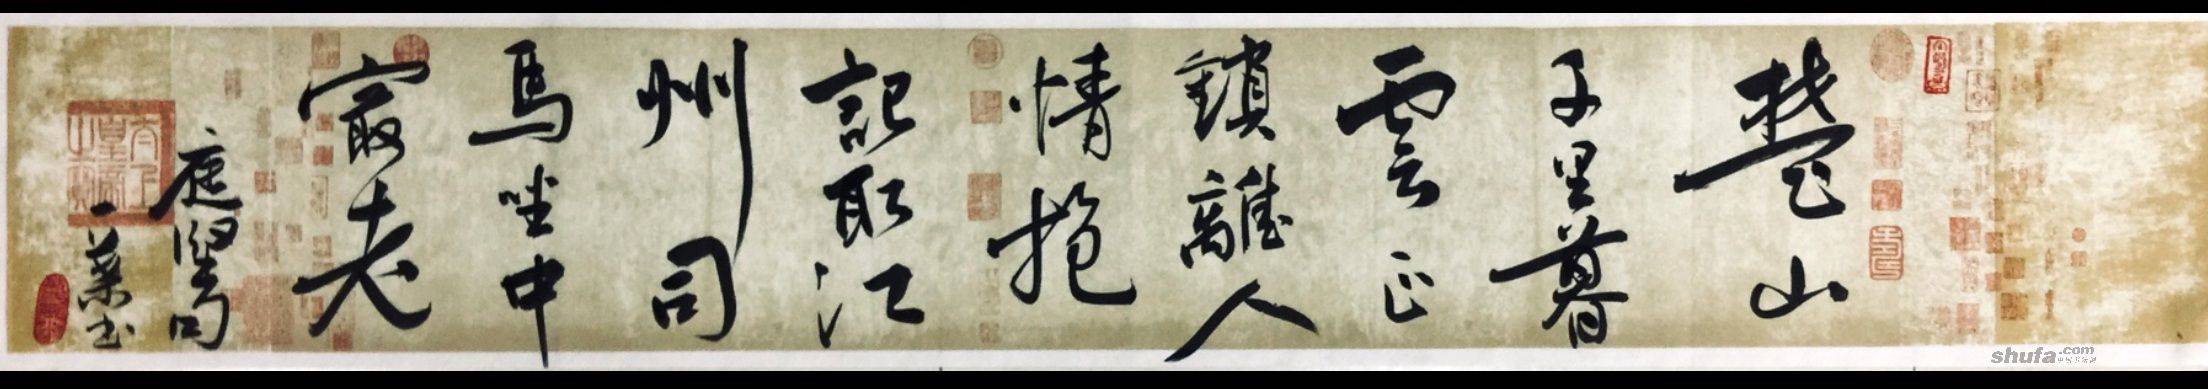 楚山
千里暮
雲正
鎖離人
情抱
記取江
州司
馬坐中
最老
庭堅句
一葉书
shufa.com